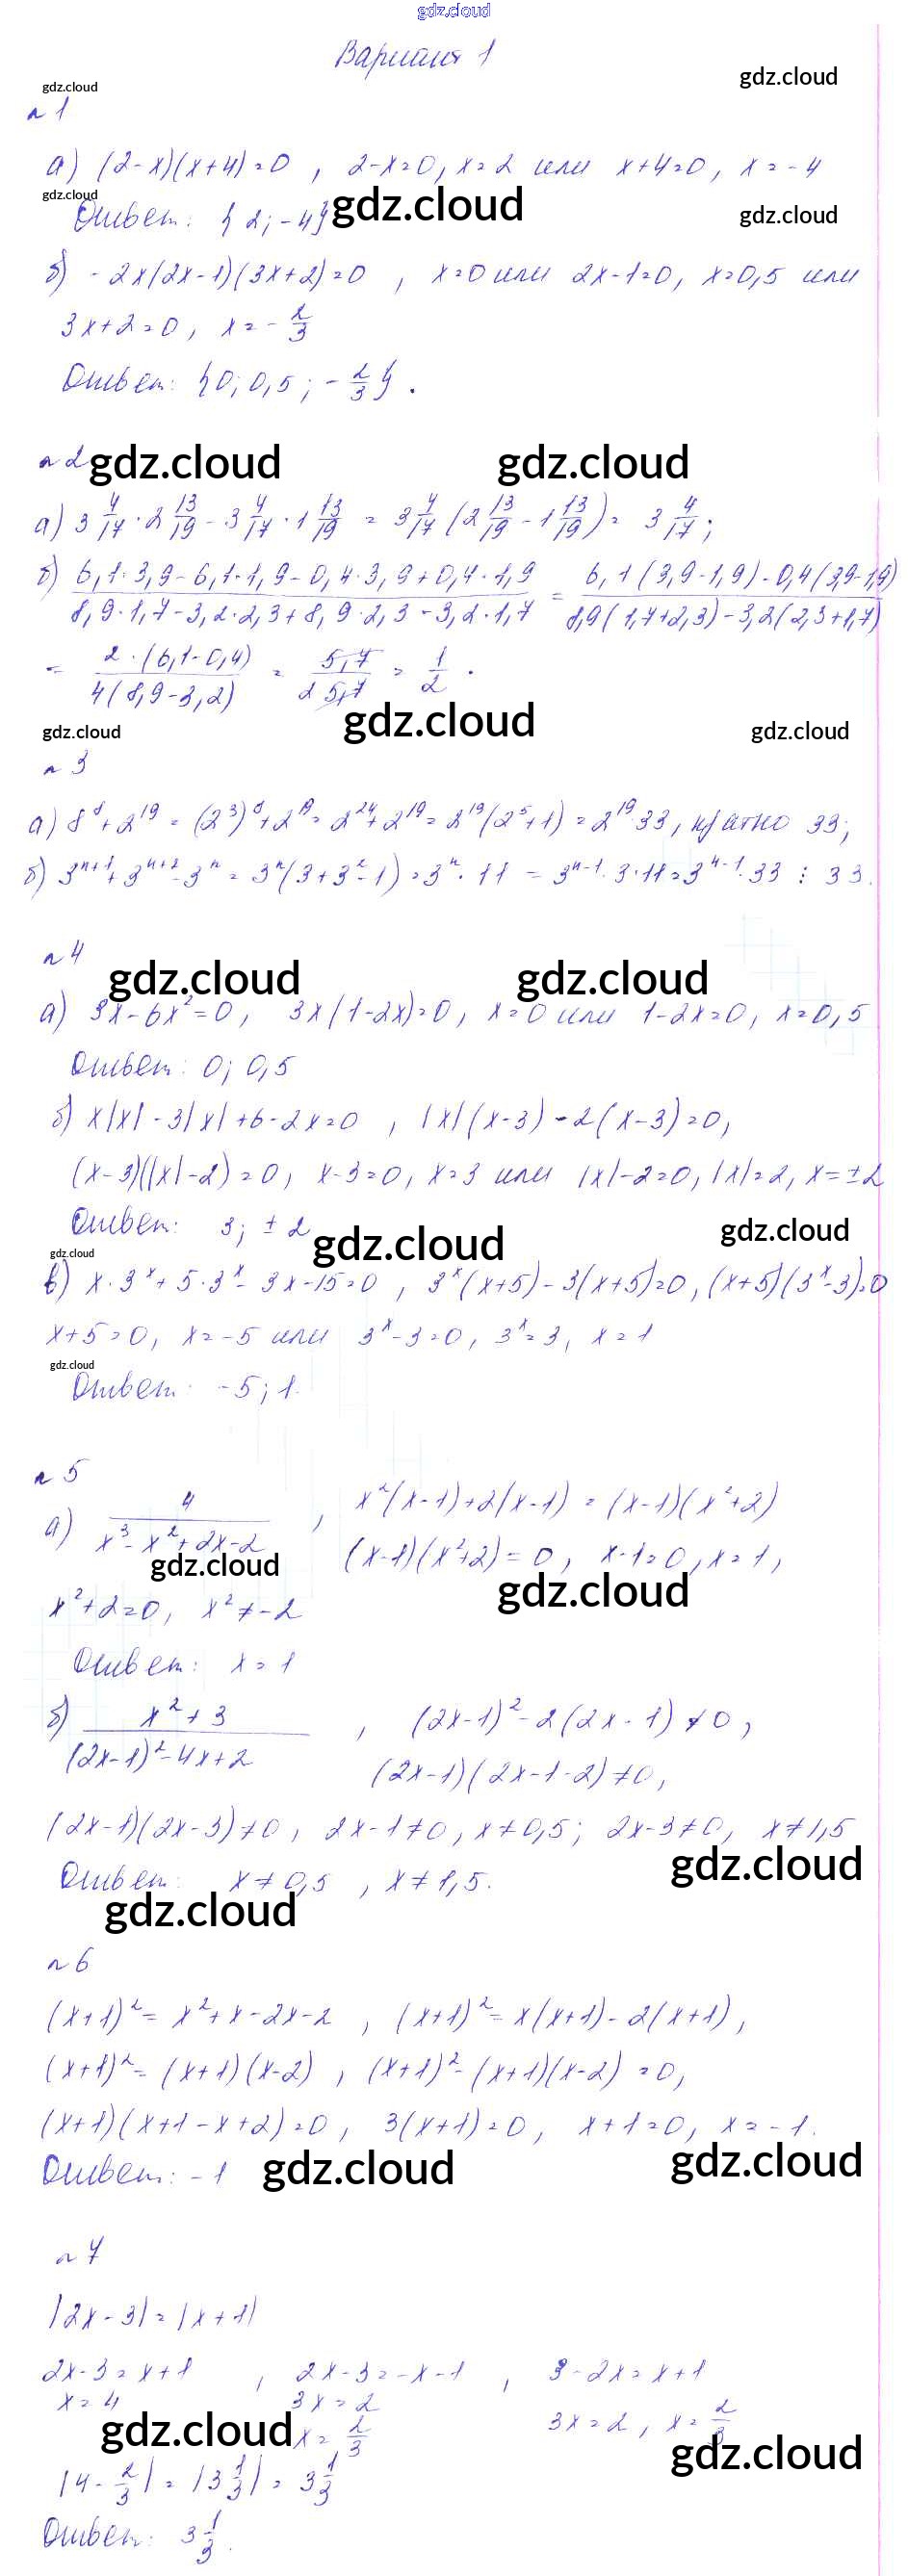 gdz.cloud
Вариант 1
gdz.cloud
gdz.cloud
№ 1
а) (2-x)(x+4)=0 , 2-x=0, x=2 или x+4=0, x=-4
gdz.cloud
Ответ: {2; -4} gdz.cloud gdz.cloud
б) -2x(2x-1)(3x+2)=0 , x=0 или 2x-1=0, x=0,5 или
3x+2=0, x=-2/3
Ответ: {0; 0,5; -2/3}.
№ 2 gdz.cloud gdz.cloud
а) 3 4/17 · 2 13/19 - 3 4/17 · 1 13/19 = 3 4/17 (2 13/19 - 1 13/19) = 3 4/17;
б) (6,1·3,9-6,1·1,9-0,4·3,9+0,4·1,9)/(8,9·1,7-3,2·2,3+8,9·2,3-3,2·1,7) = (6,1(3,9-1,9)-0,4(3,9-1,9))/(8,9(1,7+2,3)-3,2(2,3+1,7))
= (2·(6,1-0,4))/(4(8,9-3,2)) = 5,7/(2 5,7) = 1/2.
gdz.cloud gdz.cloud gdz.cloud
№ 3
а) 8⁸+2¹⁹ = (2³)⁸+2¹⁹ = 2²⁴+2¹⁹ = 2¹⁹(2⁵+1) = 2¹⁹·33, кратно 33;
б) 3ⁿ⁺¹+3ⁿ⁺²-3ⁿ = 3ⁿ(3+3²-1) = 3ⁿ·11 = 3ⁿ⁻¹·3·11 = 3ⁿ⁻¹·33 ⋮ 33.
№ 4
gdz.cloud gdz.cloud
а) 3x-6x²=0, 3x(1-2x)=0, x=0 или 1-2x=0, x=0,5
Ответ: 0; 0,5
б) x|x|-3|x|+6-2x=0 , |x|(x-3)-2(x-3)=0,
(x-3)(|x|-2)=0, x-3=0, x=3 или |x|-2=0, |x|=2, x=±2
Ответ: 3; ±2 gdz.cloud gdz.cloud
gdz.cloud
в) x·3ˣ+5·3ˣ-3x-15=0 , 3ˣ(x+5)-3(x+5)=0, (x+5)(3ˣ-3)=0
x+5=0, x=-5 или 3ˣ-3=0, 3ˣ=3, x=1
gdz.cloud
Ответ: -5; 1.
№ 5
а) 4/(x³-x²+2x-2) , x²(x-1)+2(x-1) = (x-1)(x²+2)
gdz.cloud (x-1)(x²+2)=0, x-1=0, x=1,
gdz.cloud
x²+2=0, x²≠-2
Ответ: x=1
б) (x²+3)/((2x-1)²-4x+2) , (2x-1)²-2(2x-1)≠0,
(2x-1)(2x-1-2)≠0,
(2x-1)(2x-3)≠0, 2x-1≠0, x≠0,5; 2x-3≠0, x≠1,5
gdz.cloud
Ответ: x≠0,5 , x≠1,5.
gdz.cloud
№ 6
(x+1)²=x²+x-2x-2 , (x+1)²=x(x+1)-2(x+1),
(x+1)²=(x+1)(x-2) , (x+1)²-(x+1)(x-2)=0,
(x+1)(x+1-x+2)=0, 3(x+1)=0, x+1=0, x=-1.
Ответ: -1 gdz.cloud gdz.cloud
№ 7
|2x-3|=|x+1|
2x-3=x+1 , 2x-3=-x-1 , 3-2x=x+1
x=4 3x=2 3x=2, x=2/3
gdz.cloud x=2/3 gdz.cloud
|4-2/3|=|3 1/3|=3 1/3
Ответ: 3 1/3.